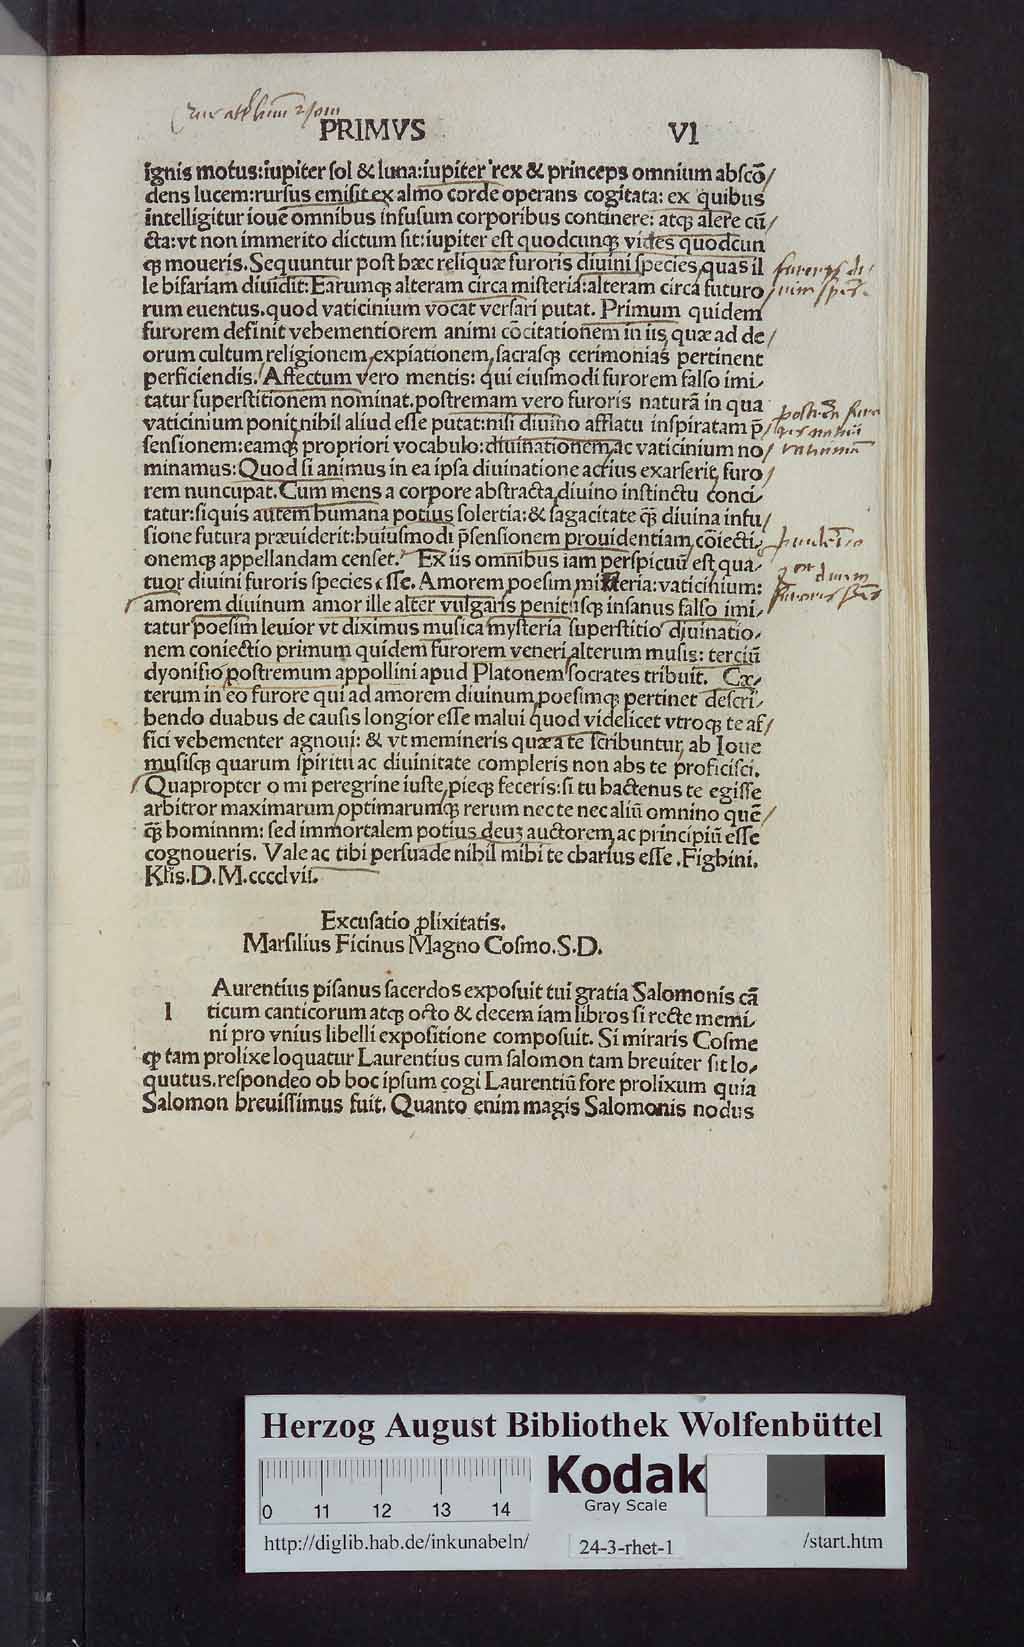 PRIMVS VI
ignis motus:iupiter sol & luna:iupiter rex & princeps omnium abscō/
dens lucem:rursus emisit ex almo corde operans cogitata: ex quibus
intelligitur iouē omnibus infusum corporibus continere: atqꝫ alere cū/
cta:vt non immerito dictum sit:iupiter est quodcunqꝫ vides quodcun
qꝫ moueris.Sequuntur post hæc reliquæ furoris diuini species,quas il
le bifariam diuidit:Earumqꝫ alteram circa misteria:alteram circa futuro
rum euentus.quod vaticinium vocat versari putat. Primum quidem
furorem definit vehementiorem animi cōcitationem in iis, quæ ad de/
orum cultum,religionem,expiationem,sacrasqꝫ cerimonias pertinent
perficiendis. Affectum vero mentis: qui eiusmodi furorem falso imi/
tatur superstitionem nominat.postremam vero furoris naturā in qua
vaticinium ponit,nihil aliud esse putat:nisi diuino afflatu inspiratam p̄/
sensionem:eamqꝫ propriori vocabulo:diuinationem,ac vaticinium no/
minamus:Quod si animus in ea ipsa diuinatione acrius exarserit, furo/
rem nuncupat.Cum mens a corpore abstracta,diuino instinctu conci/
tatur:siquis autem humana potius solertia:& sagacitate qꝫ̄ diuina infu/
sione futura præuiderit:huiusmodi p̄sensionem prouidentiam,cōiecti/
onemqꝫ appellandam censet. Ex iis omnibus iam perspicuū est,qua/
tuor diuini furoris species esse. Amorem,poesim,misteria:vaticinium:
amorem diuinum amor ille alter vulgaris penitusqꝫ insanus falso imi/
tatur poesim leuior vt diximus musica mysteria superstitio diuinatio/
nem coniectio primum quidem furorem veneri,alterum musis: terciū
dyonisio,postremum appollini apud Platonem socrates tribuit. Cæ/
terum in eo furore qui ad amorem diuinum,poesimqꝫ pertinet descri/
bendo duabus de causis longior esse malui quod videlicet vtroqꝫ te af/
fici vehementer agnoui: & vt memineris quæ a te scribuntur, ab Ioue
musisqꝫ quarum spiritu ac diuinitate compleris non abs te proficisci.
Quapropter o mi peregrine iuste,pieqꝫ feceris:si tu hactenus te egisse
arbitror maximarum,optimarumqꝫ rerum nec te nec aliū omnino quē/
qꝫ̄ hominnm: sed immortalem potius deuꝫ auctorem,ac principiū esse
cognoueris. Vale ac tibi persuade nihil mihi te charius esse .Fighini.
Kl̄is.D.M.cccclvii.
Excusatio ꝓlixitatis.
Marsilius Ficinus Magno Cosmo.S.D.
l Aurentius pisanus sacerdos exposuit tui gratia Salomonis cā
ticum canticorum atqꝫ octo & decem iam libros si recte memi/
ni pro vnius libelli expositione composuit. Si miraris Cosme
qꝫ tam prolixe loquatur Laurentius cum salomon tam breuiter sit lo/
quutus.respondeo ob hoc ipsum cogi Laurentiū fore prolixum quia
Salomon breuissimus fuit. Quanto enim magis Salomonis nodus
Herzog August Bibliothek Wolfenbüttel
Kodak
Gray Scale
0 11 12 13 14
http://diglib.hab.de/inkunabeln/ 24-3-rhet-1 /start.htm